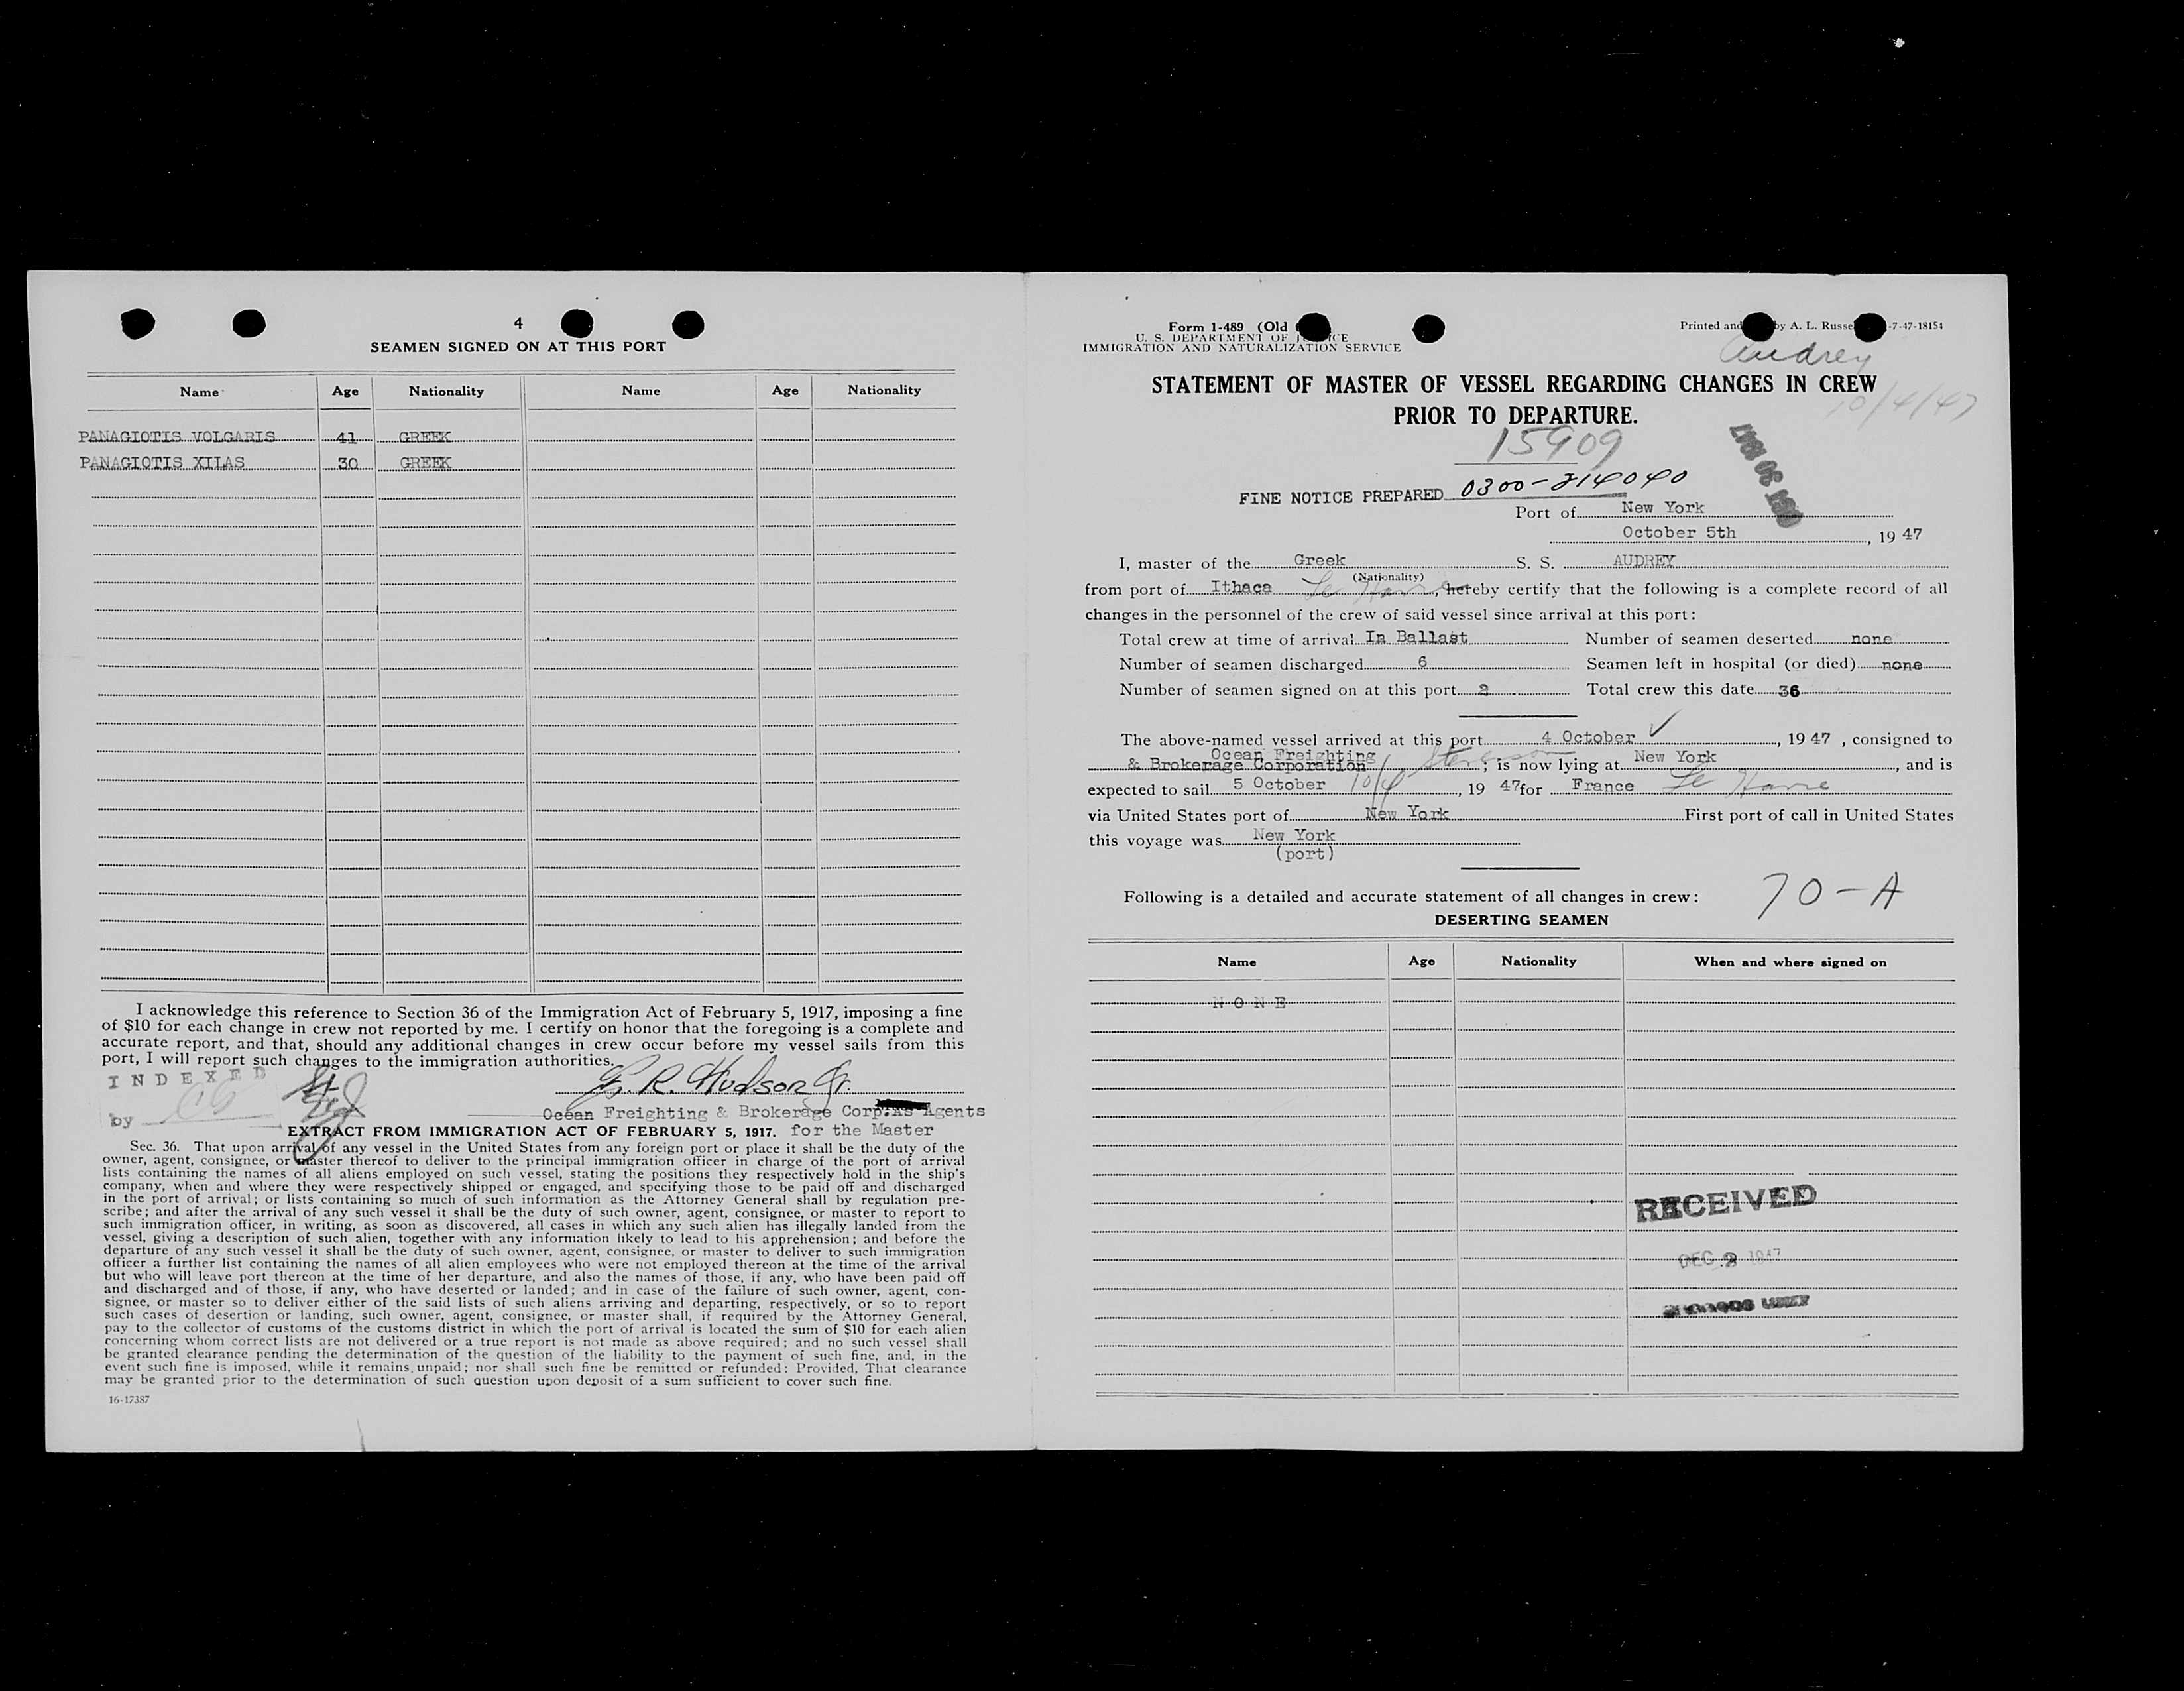 4
SEAMEN SIGNED ON AT THIS PORT
Name Age Nationality Name Age Nationality
PANAGIOTIS VOLGARIS 41 GREEK
PANAGIOTIS XILAS 30 GREEK
I acknowledge this reference to Section 36 of the Immigration Act of February 5, 1917, imposing a fine
of $10 for each change in crew not reported by me. I certify on honor that the foregoing is a complete and
accurate report, and that, should any additional changes in crew occur before my vessel sails from this
port, I will report such changes to the immigration authorities.
INDEXED
R. Hudson Jr.
by
Ocean Freighting & Brokerage Corp. As Agents
EXTRACT FROM IMMIGRATION ACT OF FEBRUARY 5, 1917. for the Master
Sec. 36. That upon arrival of any vessel in the United States from any foreign port or place it shall be the duty of the
owner, agent, consignee, or master thereof to deliver to the principal immigration officer in charge of the port of arrival
lists containing the names of all aliens employed on such vessel, stating the positions they respectively hold in the ship's
company, when and where they were respectively shipped or engaged, and specifying those to be paid off and discharged
in the port of arrival; or lists containing so much of such information as the Attorney General shall by regulation pre-
scribe; and after the arrival of any such vessel it shall be the duty of such owner, agent, consignee, or master to report to
such immigration officer, in writing, as soon as discovered, all cases in which any such alien has illegally landed from the
vessel, giving a description of such alien, together with any information likely to lead to his apprehension; and before the
departure of any such vessel it shall be the duty of such owner, agent, consignee, or master to deliver to such immigration
officer a further list containing the names of all alien employees who were not employed thereon at the time of the arrival
but who will leave port thereon at the time of her departure, and also the names of those, if any, who have been paid off
and discharged and of those, if any, who have deserted or landed; and in case of the failure of such owner, agent, con-
signee, or master so to deliver either of the said lists of such aliens arriving and departing, respectively, or so to report
such cases of desertion or landing, such owner, agent, consignee, or master shall, if required by the Attorney General,
pay to the collector of customs of the customs district in which the port of arrival is located the sum of $10 for each alien
concerning whom correct lists are not delivered or a true report is not made as above required; and no such vessel shall
be granted clearance pending the determination of the question of the liability to the payment of such fine, and, in the
event such fine is imposed, while it remains unpaid; nor shall such fine be remitted or refunded: Provided, That clearance
may be granted prior to the determination of such question upon deposit of a sum sufficient to cover such fine.
16-17387
Form 1-489 (Old
U. S. DEPARTMENT OF JUSTICE
IMMIGRATION AND NATURALIZATION SERVICE
Printed and by A. L. Russe -7-47-18154
Audrey
10/4/47
STATEMENT OF MASTER OF VESSEL REGARDING CHANGES IN CREW
PRIOR TO DEPARTURE.
15909
FINE NOTICE PREPARED 0300-214040
Port of New York
October 5th, 19 47
I, master of the Greek S. S. AUDREY
(Nationality)
from port of Ithaca Le Havre, hereby certify that the following is a complete record of all
changes in the personnel of the crew of said vessel since arrival at this port:
Total crew at time of arrival In Ballast Number of seamen deserted none
Number of seamen discharged 6 Seamen left in hospital (or died) none
Number of seamen signed on at this port 2 Total crew this date 36
The above-named vessel arrived at this port 4 October, 19 47, consigned to
Ocean Freighting
& Brokerage Corporation; is now lying at New York, and is
expected to sail 5 October 10/4, 19 47 for France Le Havre
via United States port of New York First port of call in United States
this voyage was New York
(port)
Following is a detailed and accurate statement of all changes in crew: 70-A
DESERTING SEAMEN
Name Age Nationality When and where signed on
NONE
RECEIVED
DEC 2 1947